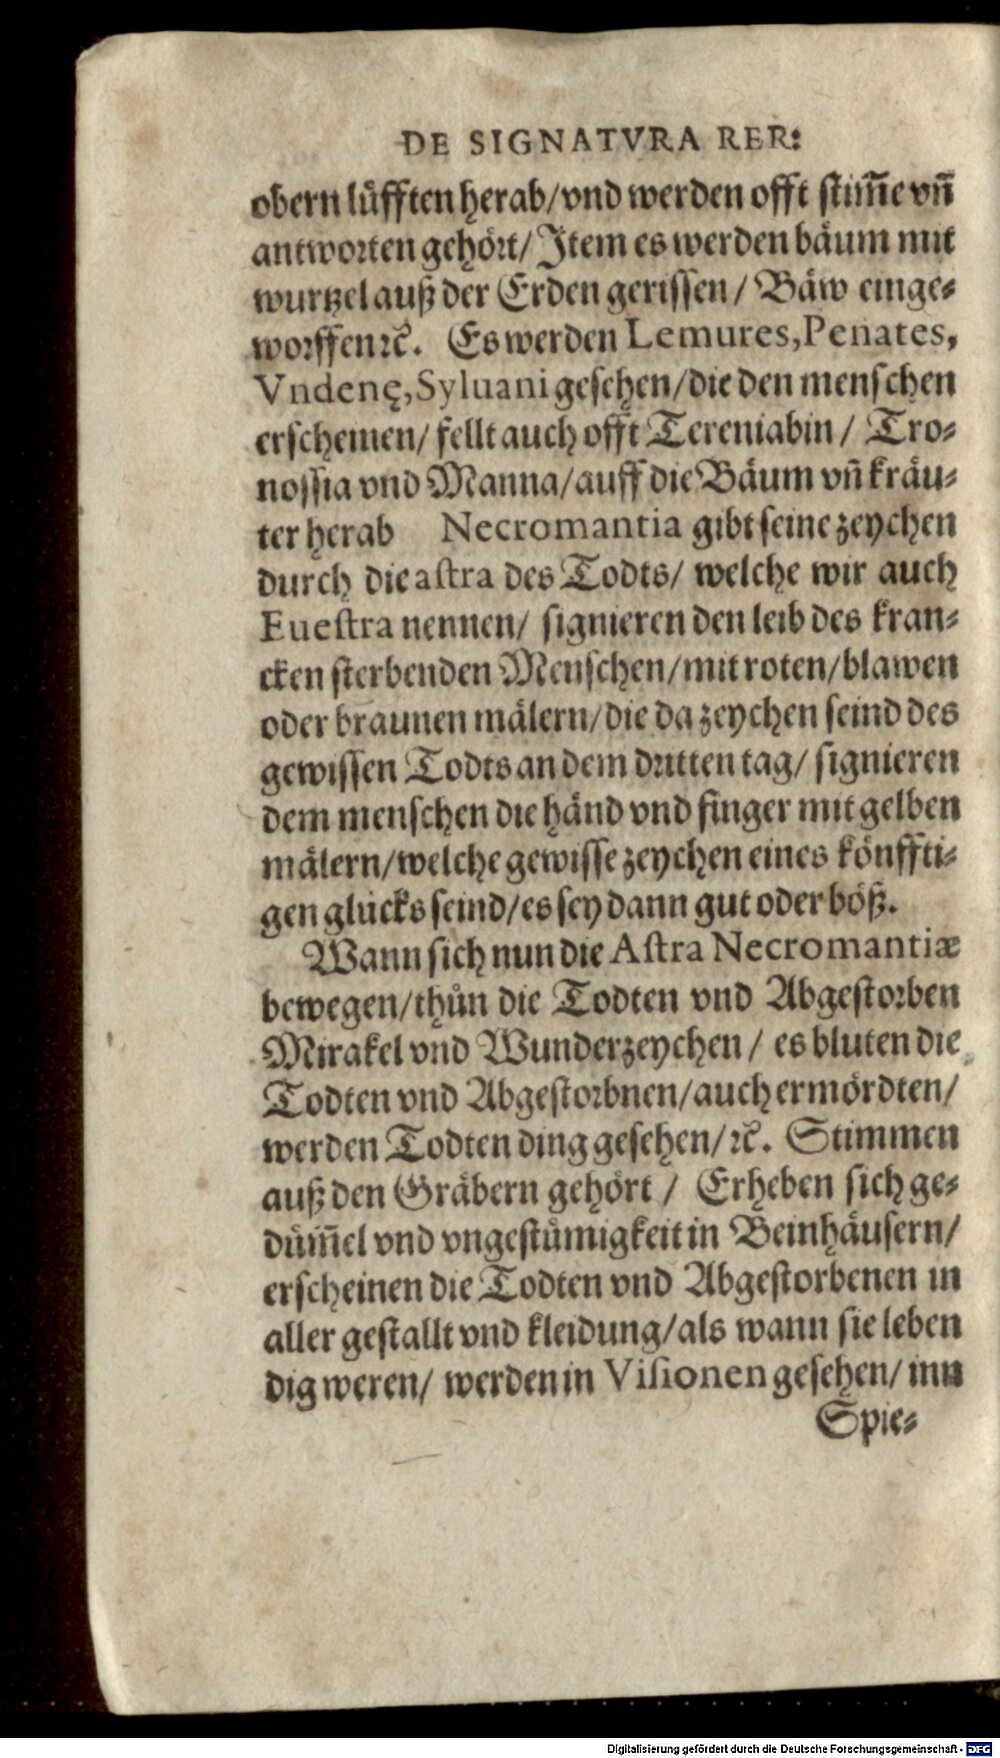 DE SIGNATVRA RER:
obern lüfften herab/vnd werden offt stim̃e vñ
antworten gehört/ Item es werden bäum mit
wurtzel auß der Erden gerissen/ Bäw einge⸗
worffen ꝛc̃. Es werden Lemures, Penates,
Vndenę, Syluani gesehen/die den menschen
erscheinen/ fellt auch offt Tereniabin/ Tro⸗
nossia vnd Manna/auff die Bäum vñ kräu⸗
ter herab Necromantia gibt seine zeychen
durch die astra des Todts/ welche wir auch
Euestra nennen/ signieren den leib des kran⸗
cken sterbenden Menschen/mit roten/blawen
oder braunen mälern/die da zeychen seind des
gewissen Todts an dem dritten tag/ signieren
dem menschen die händ vnd finger mit gelben
mälern/welche gewisse zeychen eines könffti⸗
gen glücks seind/es sey dann gut oder böß.
Wann sich nun die Astra Necromantiæ
bewegen/thůn die Todten vnd Abgestorben
Mirakel vnd Wunderzeychen/ es bluten die
Todten vnd Abgestorbnen/auch ermördten/
werden Todten ding gesehen/ꝛc̃. Stimmen
auß den Gräbern gehört/ Erheben sich ge⸗
düm̃el vnd vngestümigkeit in Beinhäusern/
erscheinen die Todten vnd Abgestorbenen in
aller gestallt vnd kleidung/als wann sie leben
dig weren/ werden in Visionen gesehen/ inn
Spie⸗
Digitalisierung gefördert durch die Deutsche Forschungsgemeinschaft - DFG